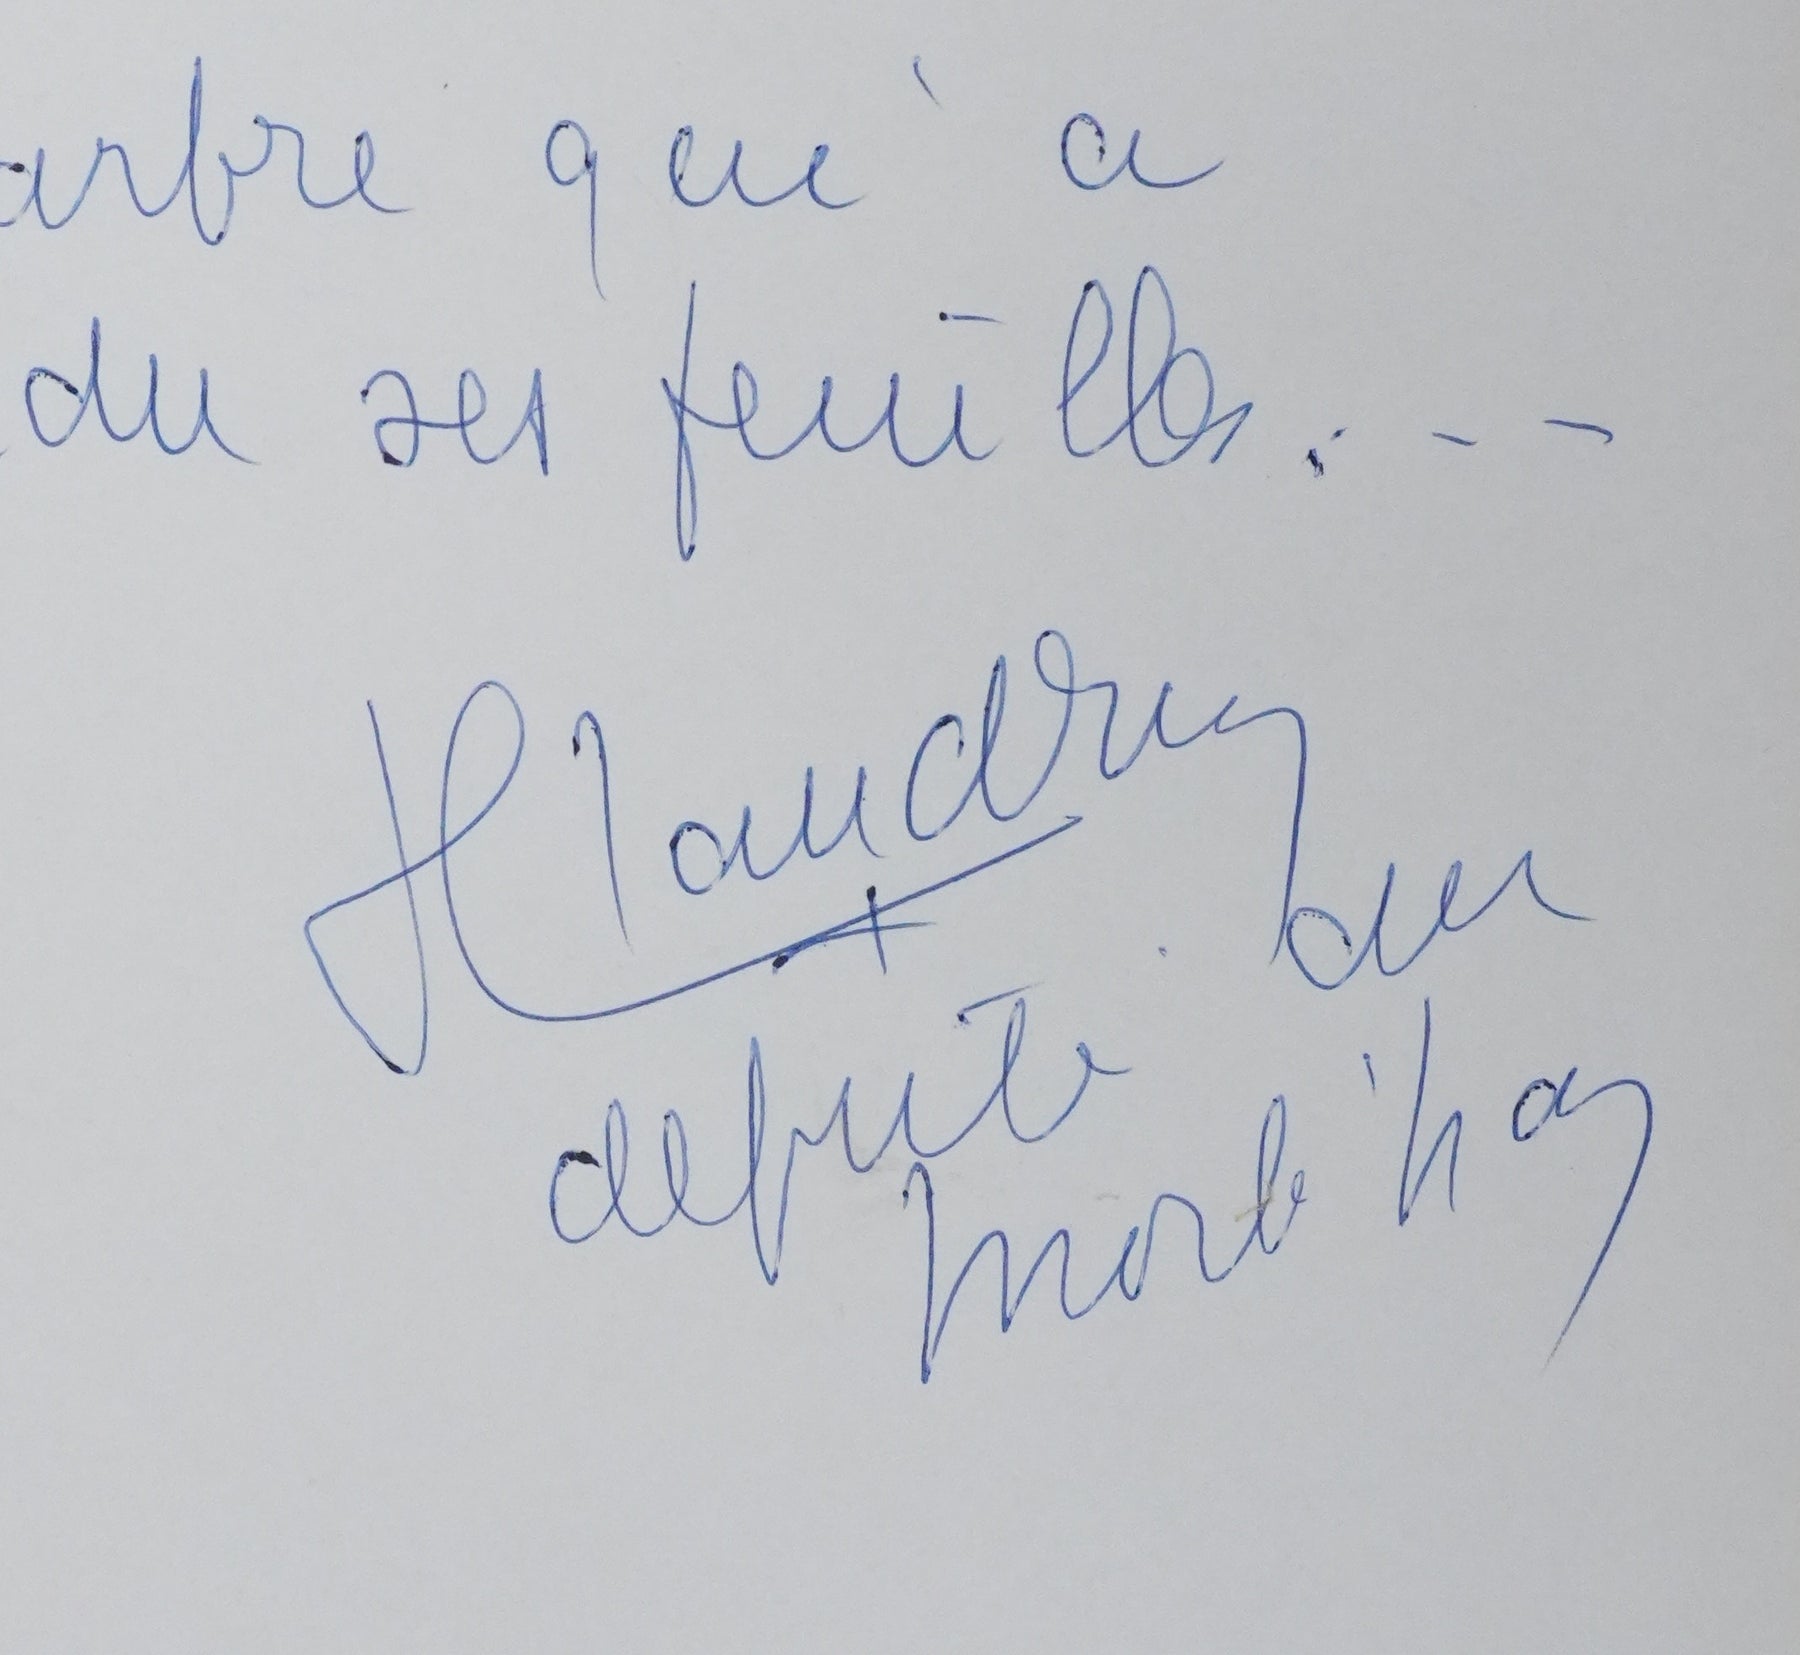 arbre qui a
du ses feuilles...
H Laudrin
député du
Morbihan